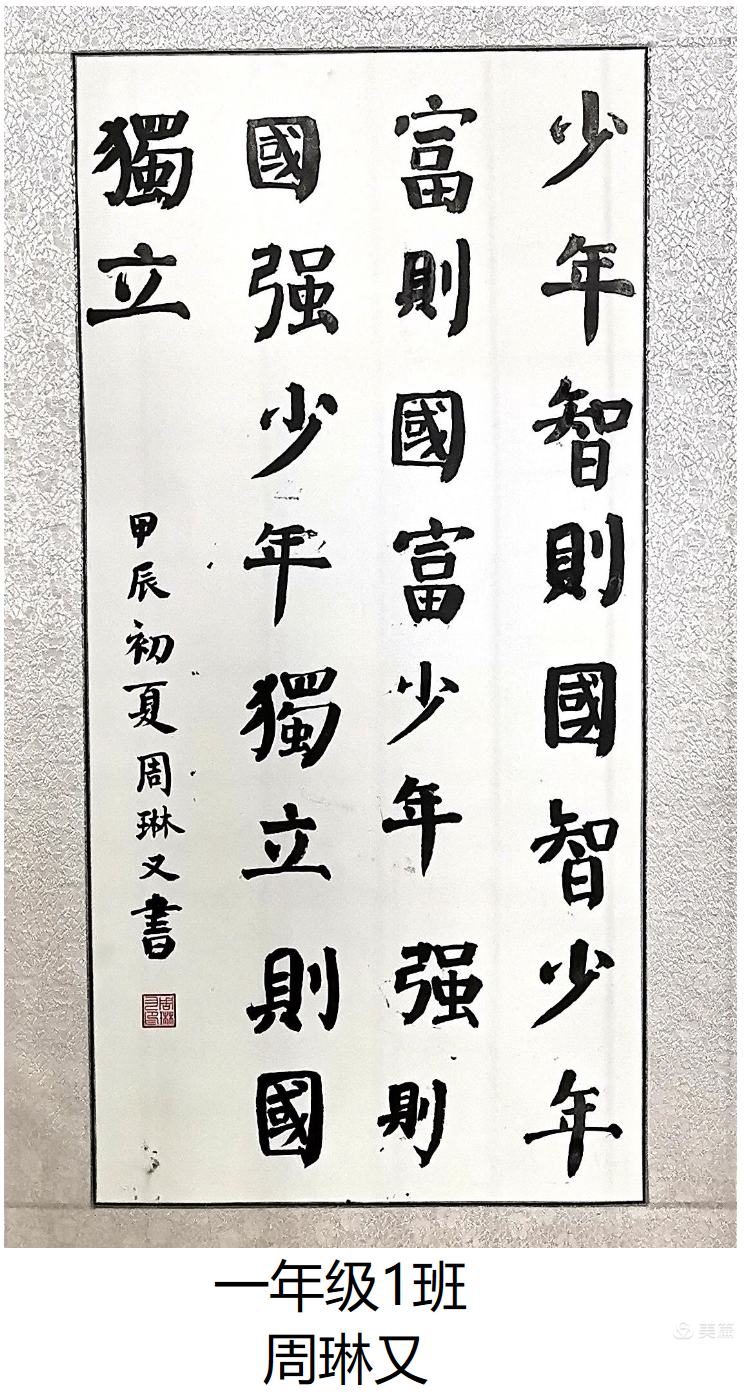 少年智則國智少年
富則國富少年强則
國强少年獨立則國
獨立
甲辰初夏周琳又書
周琳又印
一年级1班
周琳又
美篇